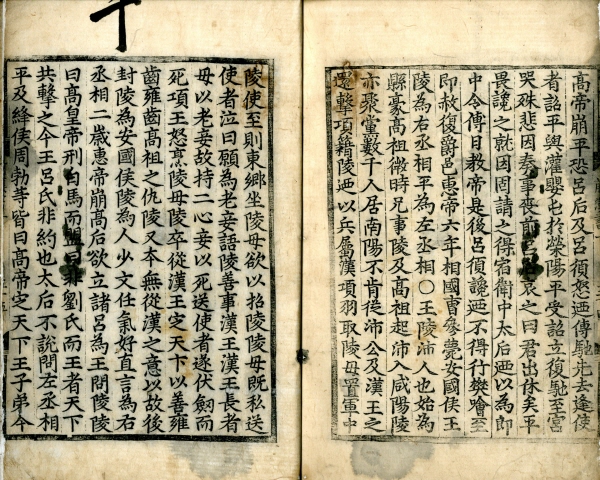 高帝崩平恐呂后及呂須怒廼傳馳先去逢使
者詔平與灌嬰屯於榮陽平受詔立復馳至宮
哭殊悲因奏事喪前呂后哀之曰君出休矣平
畏讒之就因固請之得宿衛中太后廼以為郎
中令傅日教帝是後呂須讒廼不得行樊噲至
即赦復爵邑惠帝六年相國曹參薨安國侯王
陵為右丞相平為左丞相○王陵沛人也始為
縣豪高祖微時兄事陵及高祖起沛入咸陽陵
亦聚黨數千人居南陽不肯從沛公及漢王之
還擊項籍陵廼以兵屬漢項羽取陵母置軍中
陵使至則東鄉坐陵母欲以招陵陵母既私送
使者泣曰願為老妾語陵善事漢王漢王長者
毋以老妾故持二心妾以死送使者遂伏劔而
死項王怒烹陵母陵卒從漢王定天下以善雍
齒雍齒高祖之仇陵又本無從漢之意以故後
封陵為安國侯陵為人少文任氣好直言為右
丞相二歲惠帝崩高后欲立諸呂為王問陵陵
曰高皇帝刑白馬而盟曰非劉氏而王者天下
共擊之今王呂氏非約也太后不說問左丞相
平及絳侯周勃等皆曰高帝定天下王子弟今